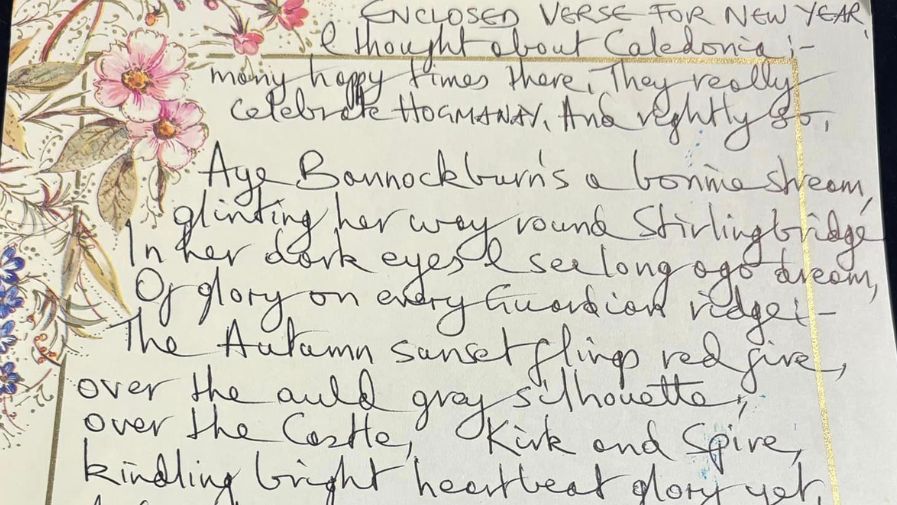 ENCLOSED VERSE FOR NEW YEAR
I thought about Caledonia;-
many happy times there, They really
celebrate HOGMANAY, And rightly so,
Aye Bannockburn's a bonnie stream,
glinting her way round Stirling bridge
In her dark eyes I see long ago dream,
Of glory on every Guardian ridge;-
The Autumn sunset flings red fire,
over the auld grey silhouette;
over the Castle, Kirk and Spire,
kindling bright heartbeat glory yet,